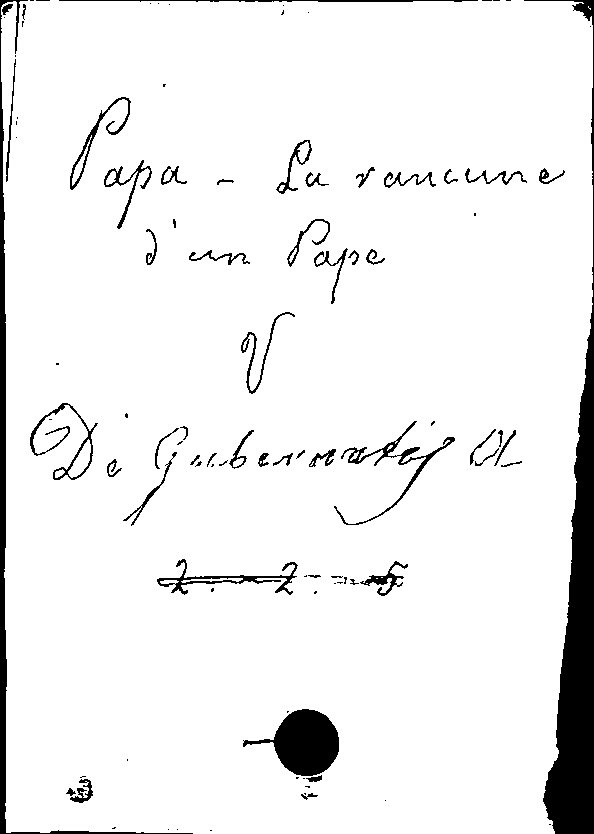 Papa - La rancune
d'un Pape
V
De Gubernatis A
2. - 2. - 5